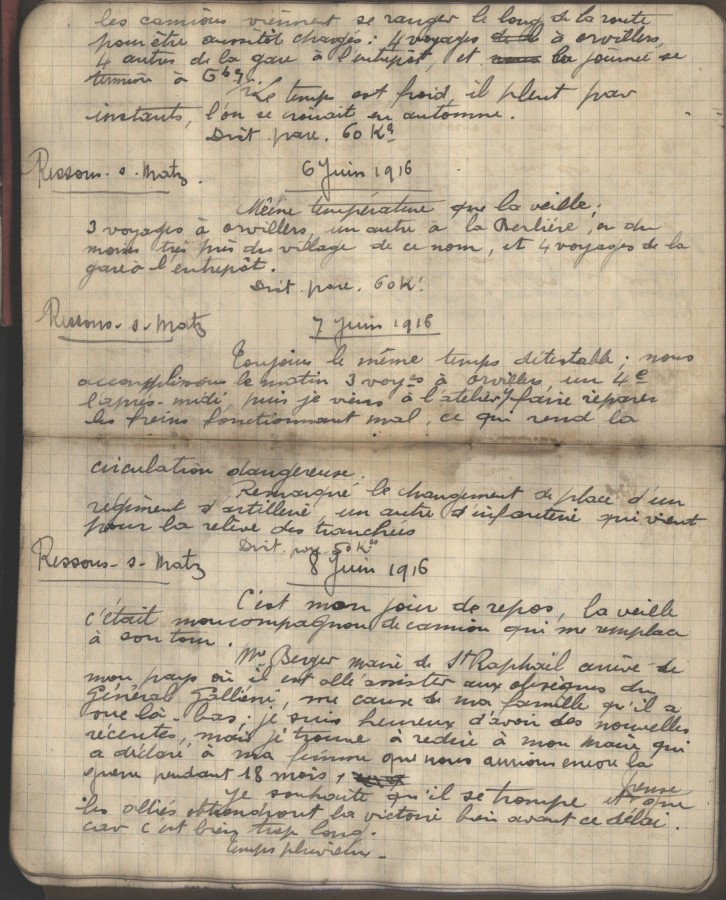 les camions viennent se ranger le long de la route
pour être aussitôt chargés : 4 voyages à orvillers,
4 autres de la gare à l'entrepôt, et la journée se
termine à 6h
Le temps est froid, il pleut par
instants, l'on se croirait en automne.
Dist. parc. 60 Ks
Ressons-s-Matz. 6 Juin 1916
Même température que la veille ;
3 voyages à orvillers, un autre à la Berlière, ou du
moins très près du village de ce nom, et 4 voyages de la
gare à l'entrepôt.
Dist. parc. 60 K.
Ressons-s-Matz 7 Juin 1916
Toujours le même temps détestable ; nous
accomplissons le matin 3 voyes à orvillers, un 4e
l'après-midi, puis je viens à l'atelier faire réparer
les freins fonctionnant mal, ce qui rend la
circulation dangereuse.
Remarqué le changement de place d'un
régiment d'artillerie, un autre d'infanterie qui vient
pour la relève des tranchées
Dist. parc 50 Ks
Ressons-s-Matz 8 Juin 1916
C'est mon jour de repos, la veille
c'était mon compagnon de camion qui me remplaca
à son tour.
Mr Berger maire de St Raphaël arrive de
mon pays où il est allé assister aux obsèques du
Général Galliéni, me cause de ma famille qu'il a
vue là-bas ; je suis heureux d'avoir des nouvelles
récentes, mais je trouve à redire à mon maire qui
a déclaré à ma femme que nous aurions encore la
guerre pendant 18 mois,
Je souhaite qu'il se trompe et pense que
les alliés obtiendront la victoire bien avant ce délai
car c'est bien trop long.
Temps pluvieux.